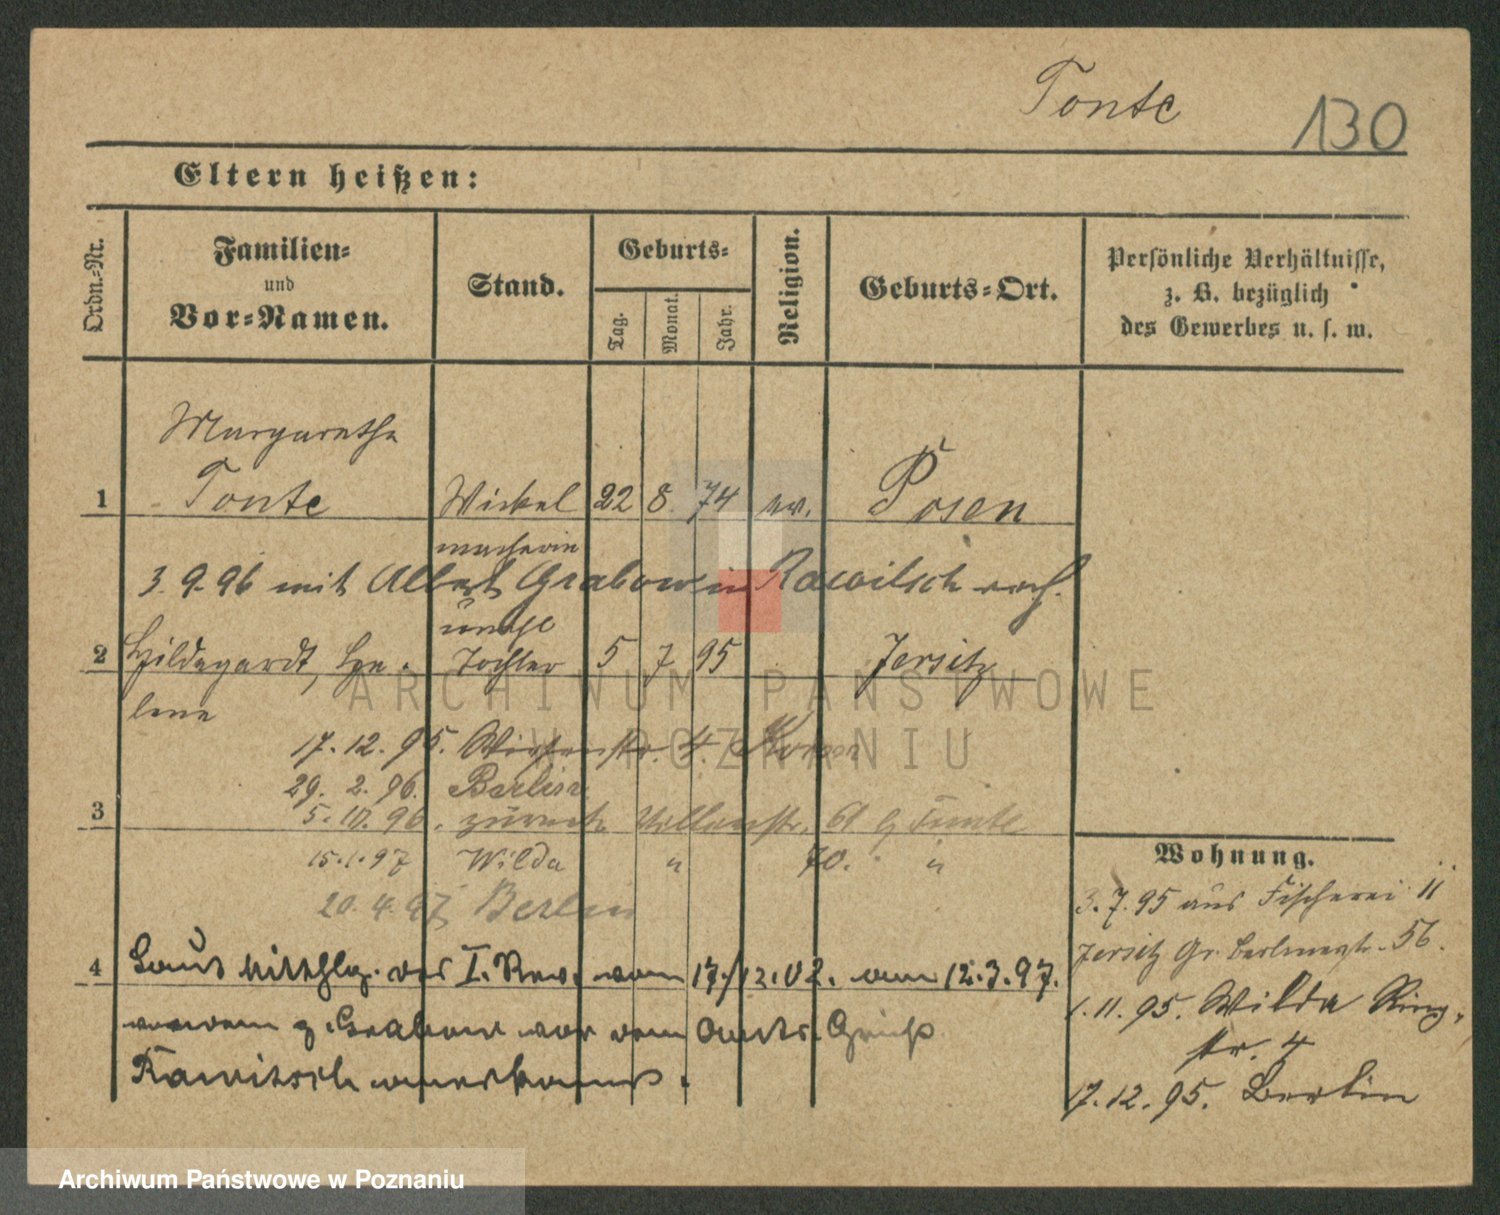 Tonte 130
Eltern heißen:
Ordn.-Nr.
Familien-
und
Vor-Namen.
Stand.
Geburts-
Tag.
Monat.
Jahr.
Religion.
Geburts-Ort.
Persönliche Verhältnisse,
z. B. bezüglich
des Gewerbes u. s. w.
Margarethe
1 Tonte Wickel 22 8 74 ev. Posen
macherin
3.9.96 mit Albert Grabow in Rawitsch verh.
unehl
2 Hildegardt, He- Tochter 5 7 95 Jersitz
lene
ARCHIWUM PAŃSTWOWE
W POZNANIU
17.12.95. 4.
29. 2. 96. Berlin
3 5.10.96. zurück 61
15.1.97 Wilda " 70. "
20.4.97 Berlin
4 Laut Mitthlg. des I. Rev. vom 17./12.02. am 12.3.97.
Grabow vor dem Amts.
Rawitsch anerkannt.
Wohnung.
3.7.95 aus Fischerei 11
Jersitz Gr. Berlinerstr. 56.
1.11.95. Wilda Ring-
str. 4
17.12.95. Berlin
Archiwum Państwowe w Poznaniu